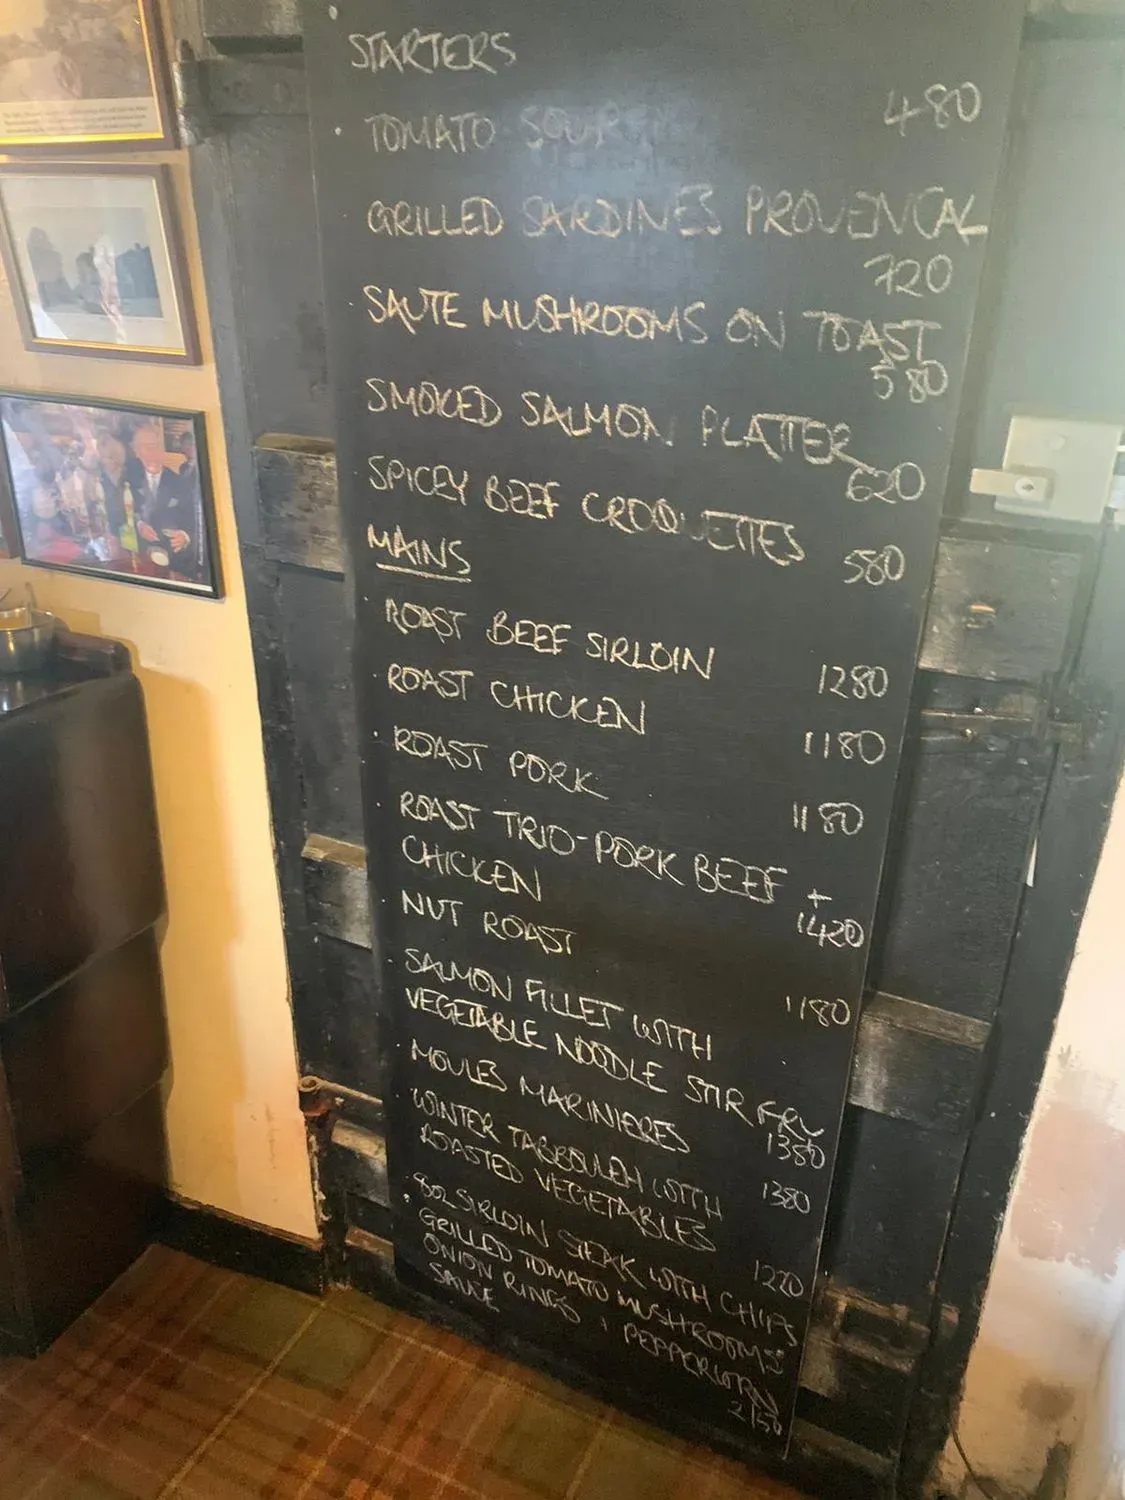 STARTERS
TOMATO SOUP 480
GRILLED SARDINES PROVENCAL
720
SAUTE MUSHROOMS ON TOAST
580
SMOKED SALMON PLATTER
620
SPICEY BEEF CROQUETTES 580
MAINS
ROAST BEEF SIRLOIN 1280
ROAST CHICKEN 1180
ROAST PORK 1180
ROAST TRIO-PORK BEEF +
CHICKEN 1420
NUT ROAST 1180
SALMON FILLET WITH
VEGETABLE NOODLE STIR FRY
1380
MOULES MARINIERES 1380
WINTER TABBOULEH WITH
ROASTED VEGETABLES 1220
8OZ SIRLOIN STEAK WITH CHIPS
GRILLED TOMATO MUSHROOMS
ONION RINGS, PEPPERCORN
SAUCE 2150